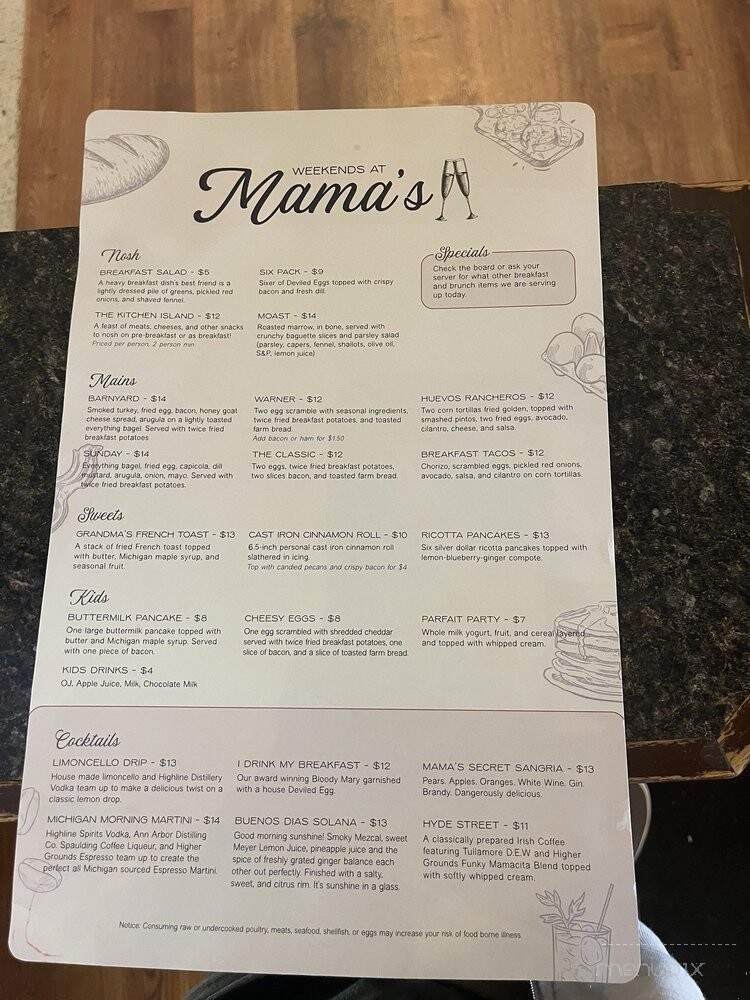 WEEKENDS AT
Mama's
Nosh
BREAKFAST SALAD - $5
A heavy breakfast dish's best friend is a
lightly dressed pile of greens, pickled red
onions, and shaved fennel.
SIX PACK - $9
Sixer of Deviled Eggs topped with crispy
bacon and fresh dill.
Specials
Check the board or ask your
server for what other breakfast
and brunch items we are serving
up today.
THE KITCHEN ISLAND - $12
A feast of meats, cheeses, and other snacks
to nosh on pre-breakfast or as breakfast!
Priced per person, 2 person min
MOAST - $14
Roasted marrow, in bone, served with
crunchy baguette slices and parsley salad
(parsley, capers, fennel, shallots, olive oil,
S&P, lemon juice)
Mains
BARNYARD - $14
Smoked turkey, fried egg, bacon, honey goat
cheese spread, arugula on a lightly toasted
everything bagel. Served with twice fried
breakfast potatoes
WARNER - $12
Two egg scramble with seasonal ingredients,
twice fried breakfast potatoes, and toasted
farm bread.
Add bacon or ham for $1.50
HUEVOS RANCHEROS - $12
Two corn tortillas fried golden, topped with
smashed pintos, two fried eggs, avocado,
cilantro, cheese, and salsa.
SUNDAY - $14
Everything bagel, fried egg, capicola, dill
mustard, arugula, onion, mayo. Served with
twice fried breakfast potatoes.
THE CLASSIC - $12
Two eggs, twice fried breakfast potatoes,
two slices bacon, and toasted farm bread.
BREAKFAST TACOS - $12
Chorizo, scrambled eggs, pickled red onions,
avocado, salsa, and cilantro on corn tortillas.
Sweets
GRANDMA'S FRENCH TOAST - $13
A stack of fried French toast topped
with butter, Michigan maple syrup, and
seasonal fruit.
CAST IRON CINNAMON ROLL - $10
6.5-inch personal cast iron cinnamon roll
slathered in icing.
Top with candied pecans and crispy bacon for $4
RICOTTA PANCAKES - $13
Six silver dollar ricotta pancakes topped with
lemon-blueberry-ginger compote.
Kids
BUTTERMILK PANCAKE - $8
One large buttermilk pancake topped with
butter and Michigan maple syrup. Served
with one piece of bacon.
CHEESY EGGS - $8
One egg scrambled with shredded cheddar
served with twice fried breakfast potatoes, one
slice of bacon, and a slice of toasted farm bread.
PARFAIT PARTY - $7
Whole milk yogurt, fruit, and cereal layered
and topped with whipped cream.
KIDS DRINKS - $4
OJ, Apple Juice, Milk, Chocolate Milk
Cocktails
LIMONCELLO DRIP - $13
House made limoncello and Highline Distillery
Vodka team up to make a delicious twist on a
classic lemon drop.
I DRINK MY BREAKFAST - $12
Our award winning Bloody Mary garnished
with a house Deviled Egg.
MAMA'S SECRET SANGRIA - $13
Pears. Apples. Oranges. White Wine. Gin.
Brandy. Dangerously delicious.
MICHIGAN MORNING MARTINI - $14
Highline Spirits Vodka, Ann Arbor Distilling
Co. Spaulding Coffee Liqueur, and Higher
Grounds Espresso team up to create the
perfect all Michigan sourced Espresso Martini.
BUENOS DIAS SOLANA - $13
Good morning sunshine! Smoky Mezcal, sweet
Meyer Lemon Juice, pineapple juice and the
spice of freshly grated ginger balance each
other out perfectly. Finished with a salty,
sweet, and citrus rim. It's sunshine in a glass.
HYDE STREET - $11
A classically prepared Irish Coffee
featuring Tullamore D.E.W and Higher
Grounds Funky Mamacita Blend topped
with softly whipped cream.
Notice: Consuming raw or undercooked poultry, meats, seafood, shellfish, or eggs may increase your risk of food borne illness.